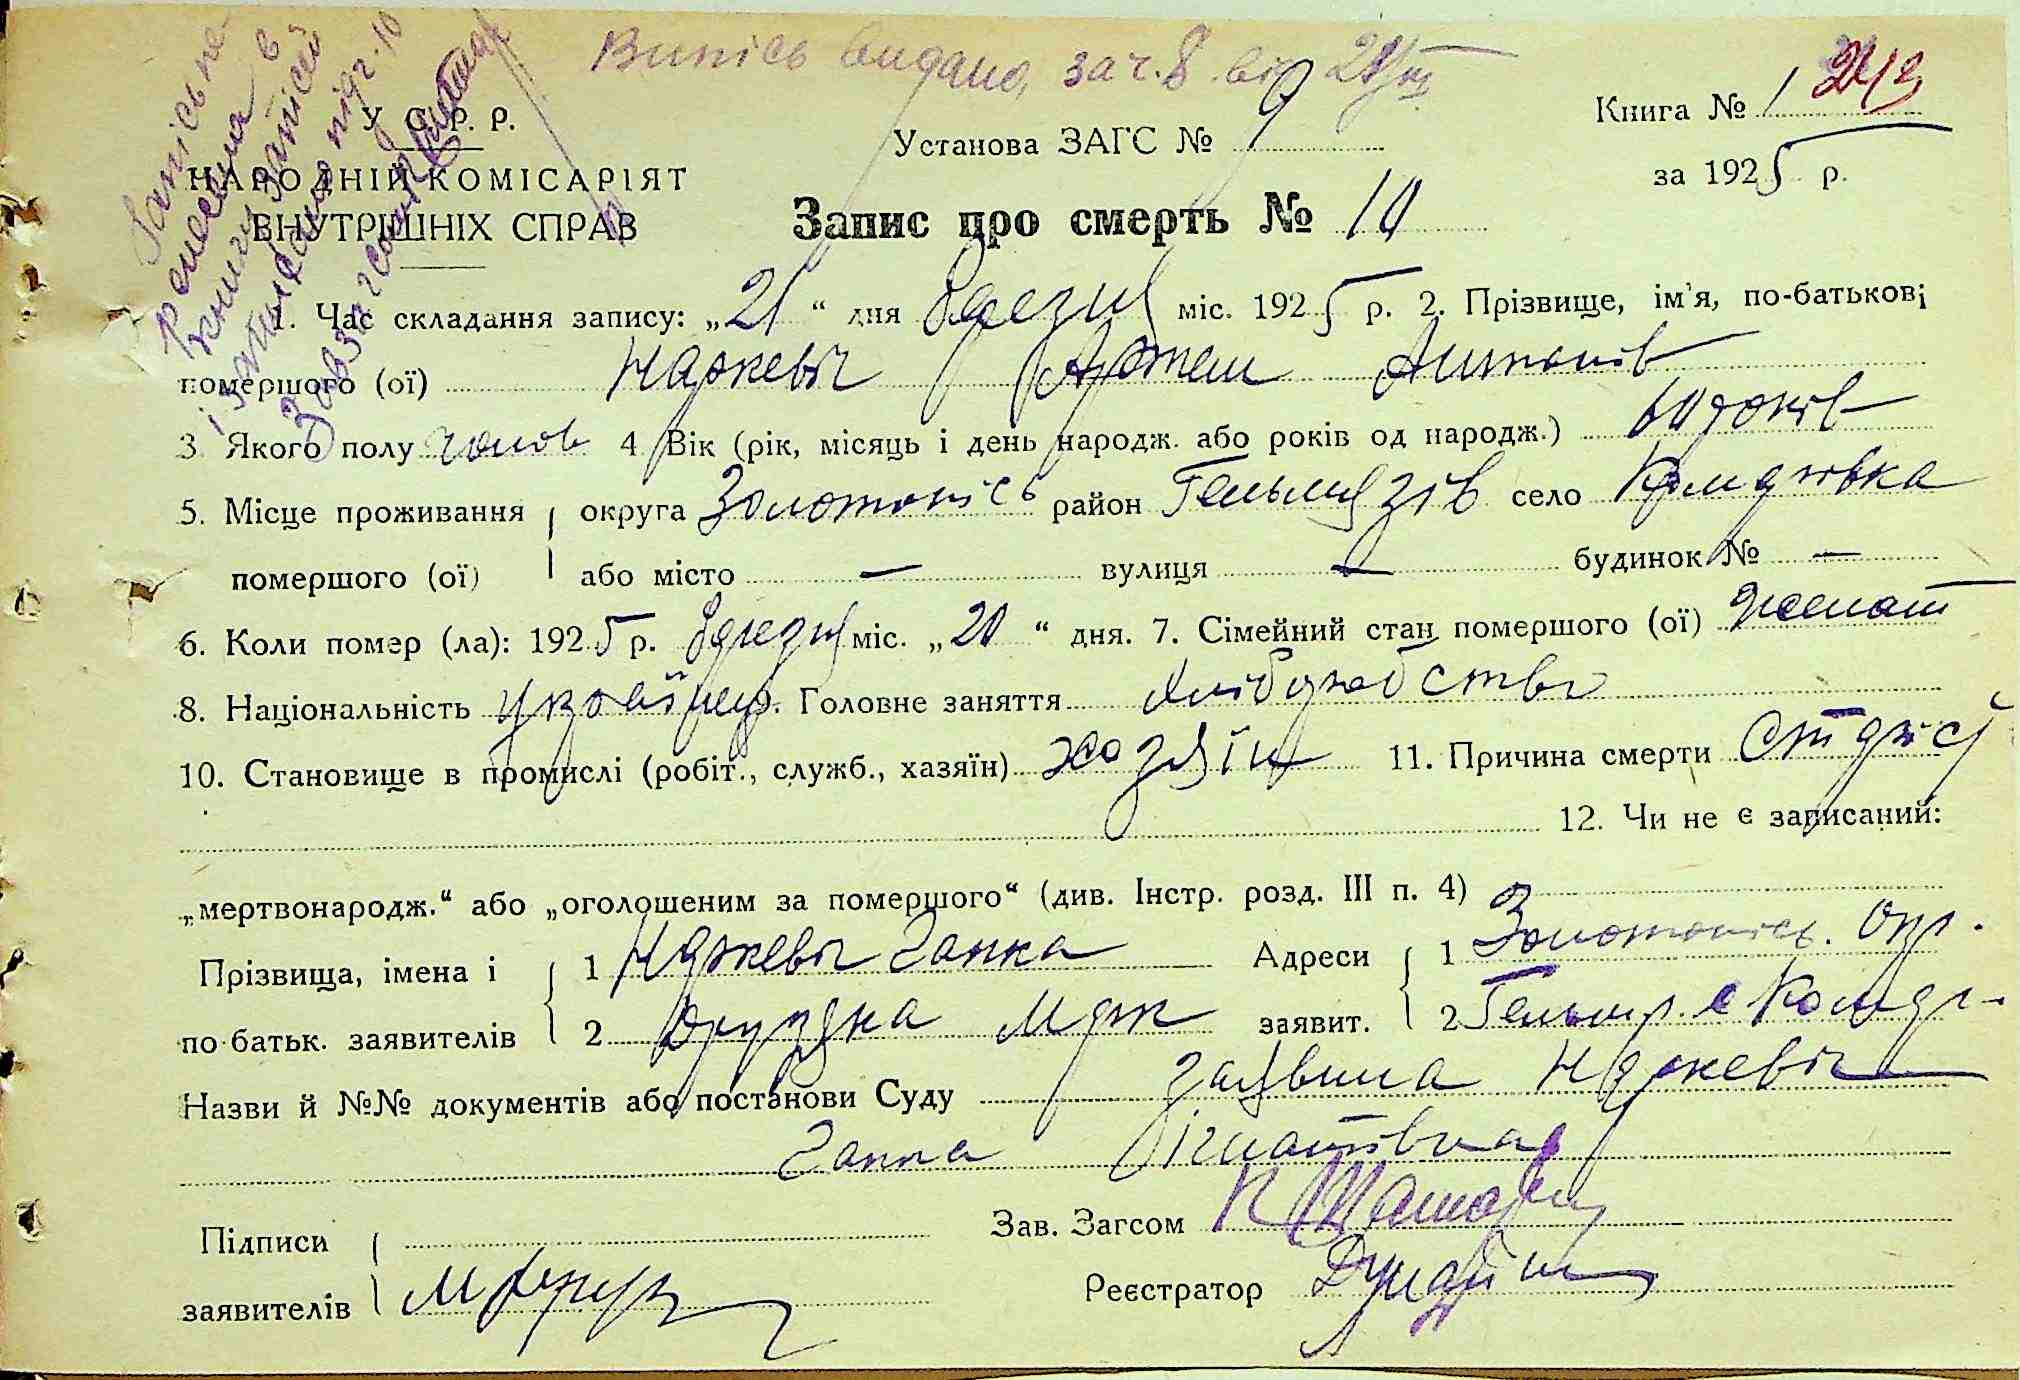 Випісь видано, за ч. 8 від 21/III
Запісь пе-
ренесена в
книгу запісей
і записано під ч. 10
Зав. загсом
У. С. Р. Р.
НАРОДНІЙ КОМІСАРІЯТ
ВНУТРІШНІХ СПРАВ
Установа ЗАГС № 9
Книга № 1
за 1925 р.
Запис про смерть № 10
1. Час складання запису: „21“ дня березня міс. 1925 р. 2. Прізвище, ім'я, по-батькові
помершого (ої) Артем Антонів
3. Якого полу чолов 4. Вік (рік, місяць і день народж. або років од народж.) 60 років
5. Місце проживання округа Золотоніськ район Гельмязів село
помершого (ої) або місто — вулиця — будинок № —
6. Коли помер (ла): 1925 р. березня міс. „20“ дня. 7. Сімейний стан помершого (ої) женат
8. Національність українец 9. Головне заняття хліборобство
10. Становище в промислі (робіт., служб., хазяїн) хозяїн 11. Причина смерти старість
12. Чи не є записаний:
„мертвонародж.“ або „оголошеним за помершого“ (див. Інстр. розд. III п. 4)
Прізвища, імена і 1 Ганна Адреси 1 Золотоніськ. Окр.
по батьк. заявителів 2 заявит. 2 Гельм. р. с
Назви й №№ документів або постанови Суду заявила
Ганна Ігнатівна
Зав. Загсом
Підписи
заявителів
Реєстратор